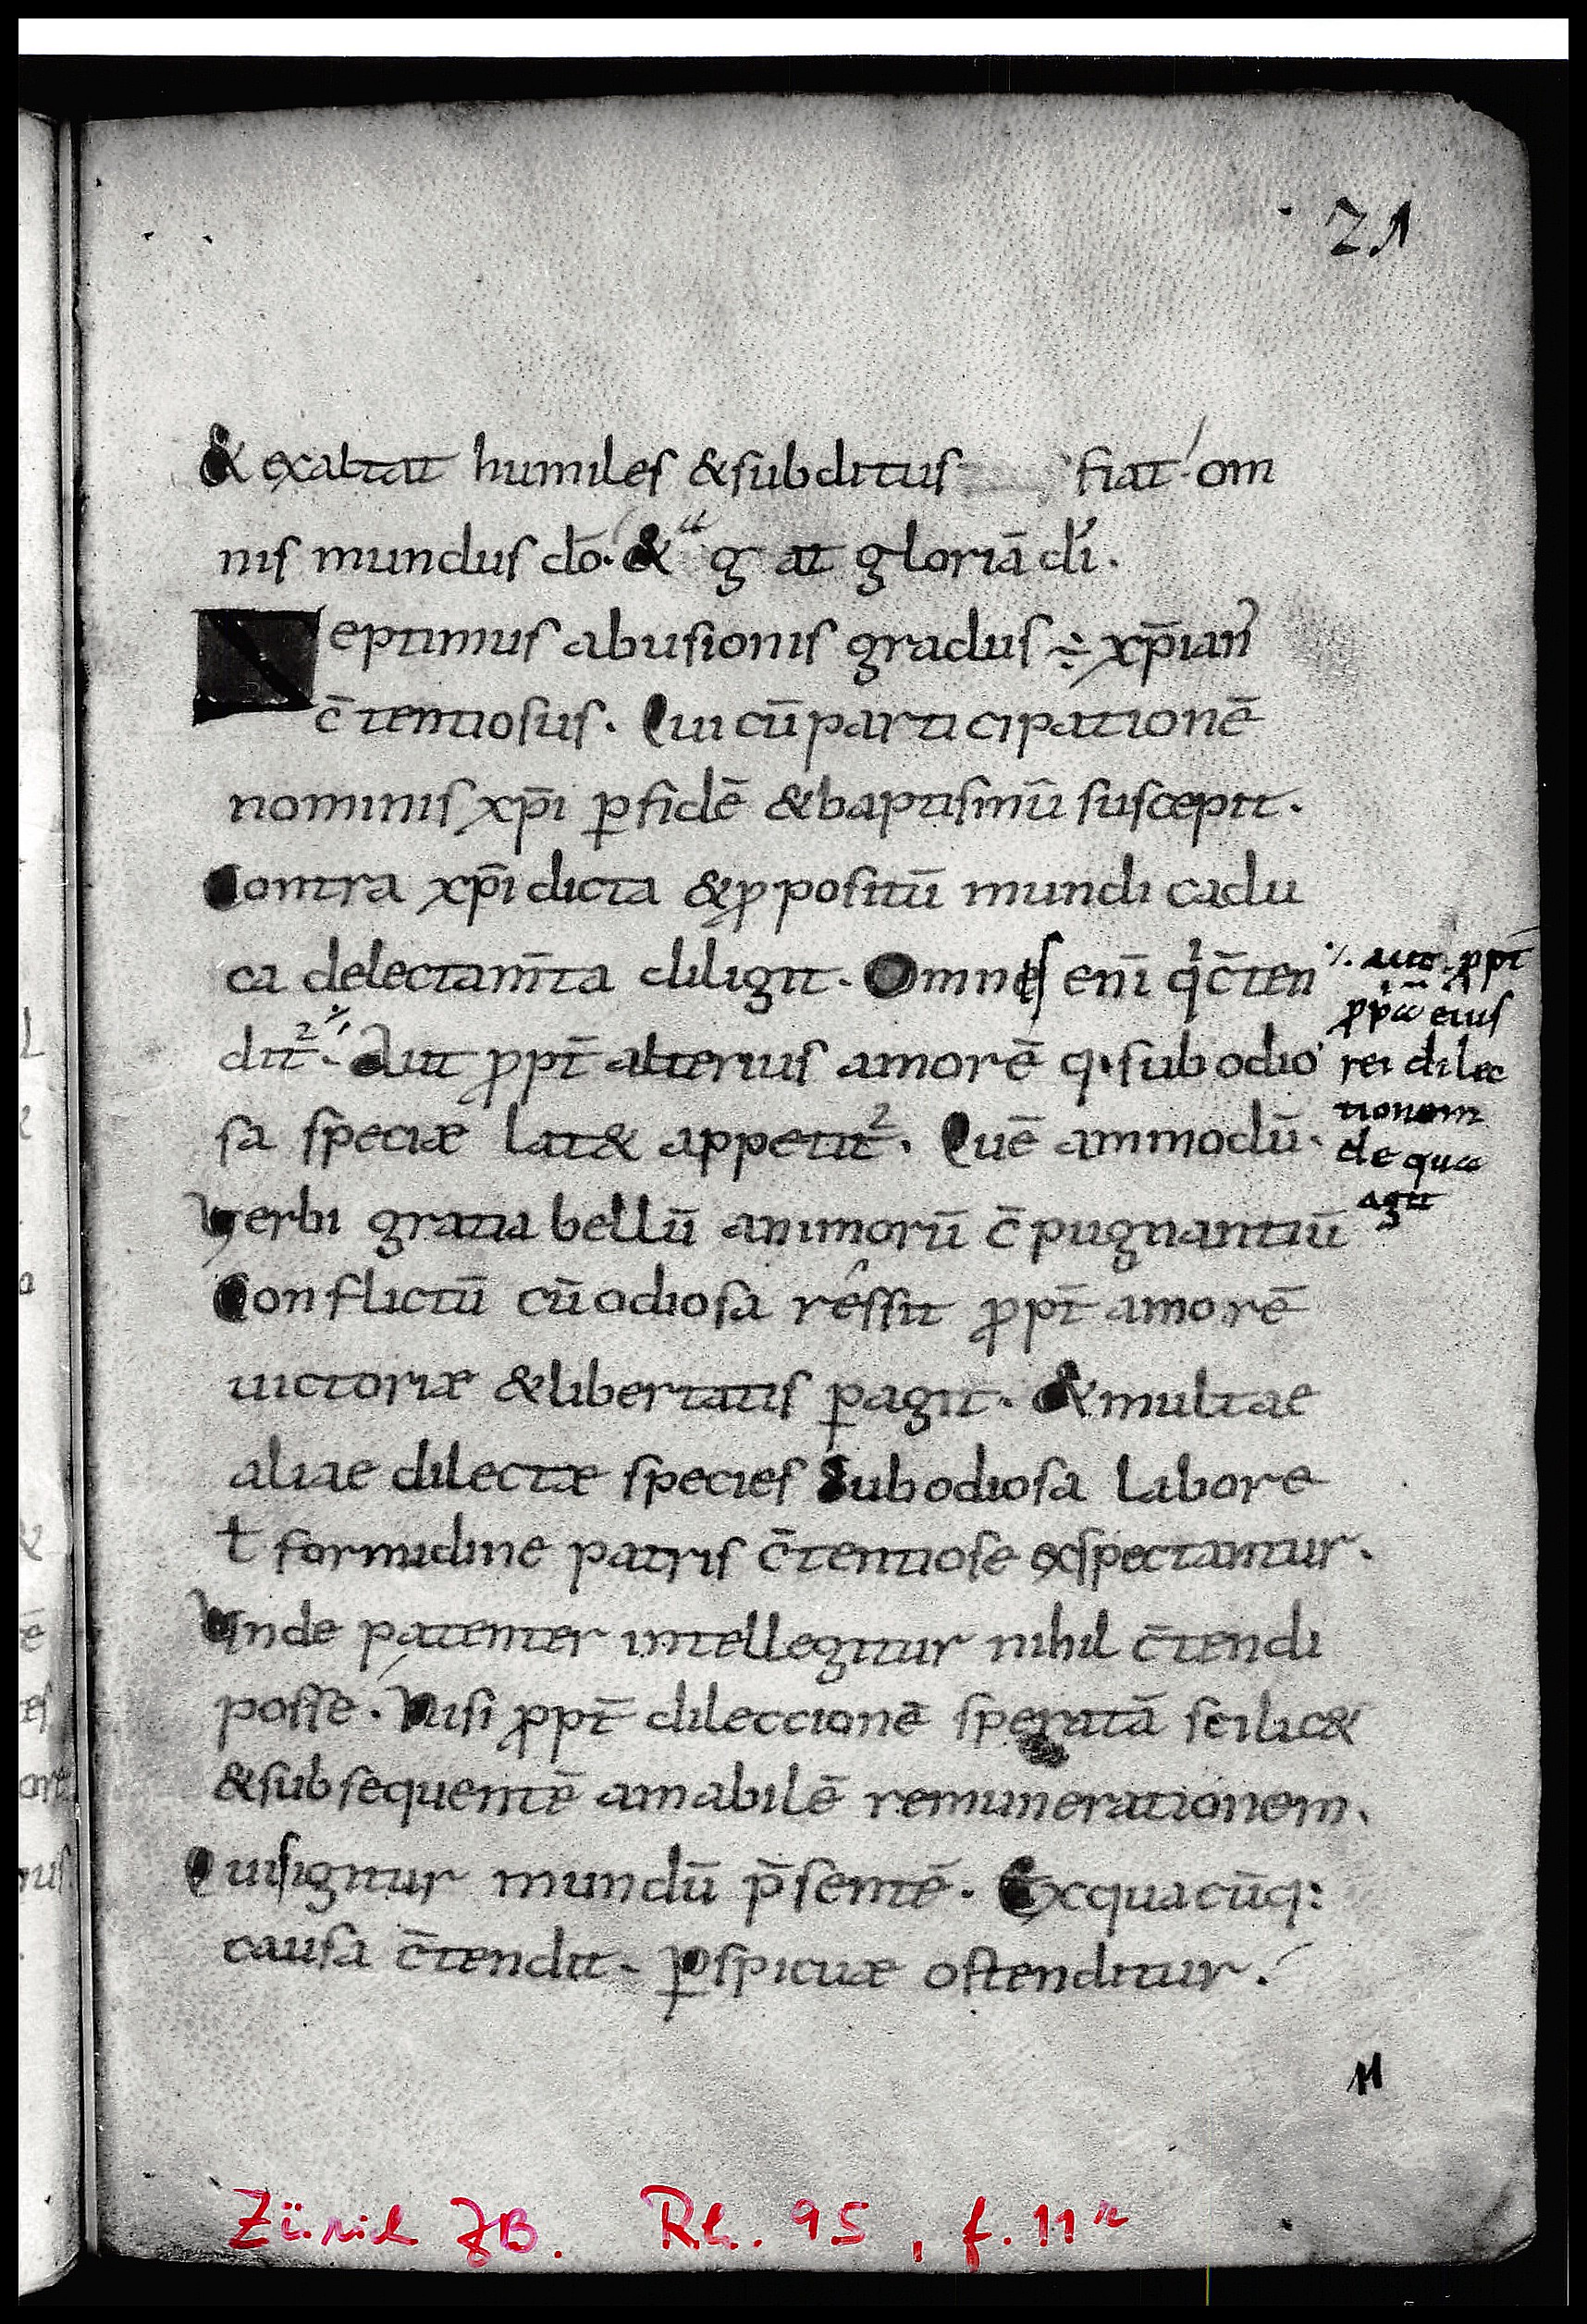 21
& exaltat humiles & subditus fiat om
nis mundus dō. & g at gloriā dī.
Septimus abusionis gradus ÷ xp̄ian̄
c̄tentiosus. Qui cū participationē
nominis xp̄i ꝑ fidē & baptismū suscepit.
Contra xp̄i dicta & ꝓpositū mundi cadu
ca delectam̄ta diligit. Omnes enī qͥ c̄ten
dit. Aut ꝓpt̄ alterius amorē q· sub odio
sa speciæ lat& appetit. Quē ammodū.
Verbi gratia bellū animorū c̄pugnantiū
Conflictū cū odiosa re ssit ꝓpt̄ amorē
uictoriæ & libertatis ꝑagit. & multae
aliae dilectæ species Sub odiosa labore
ł formidine patris c̄tentiose exspectantur.
Unde patenter intellegitur nihil c̄tendi
posse. Nisi ꝓpt̄ dileccionē speratā scilic&
& subsequentē amabilē remunerationem.
Quisigitur mundū p̄sentē. Ex quacūq:
causa c̄tendit. ꝑspicuæ ostenditur.
⁒. aut. ꝓpt̄
eius
rei dilec
tionem
de qua
agit
11
Zürich ZB. Rh. 95, f. 11r